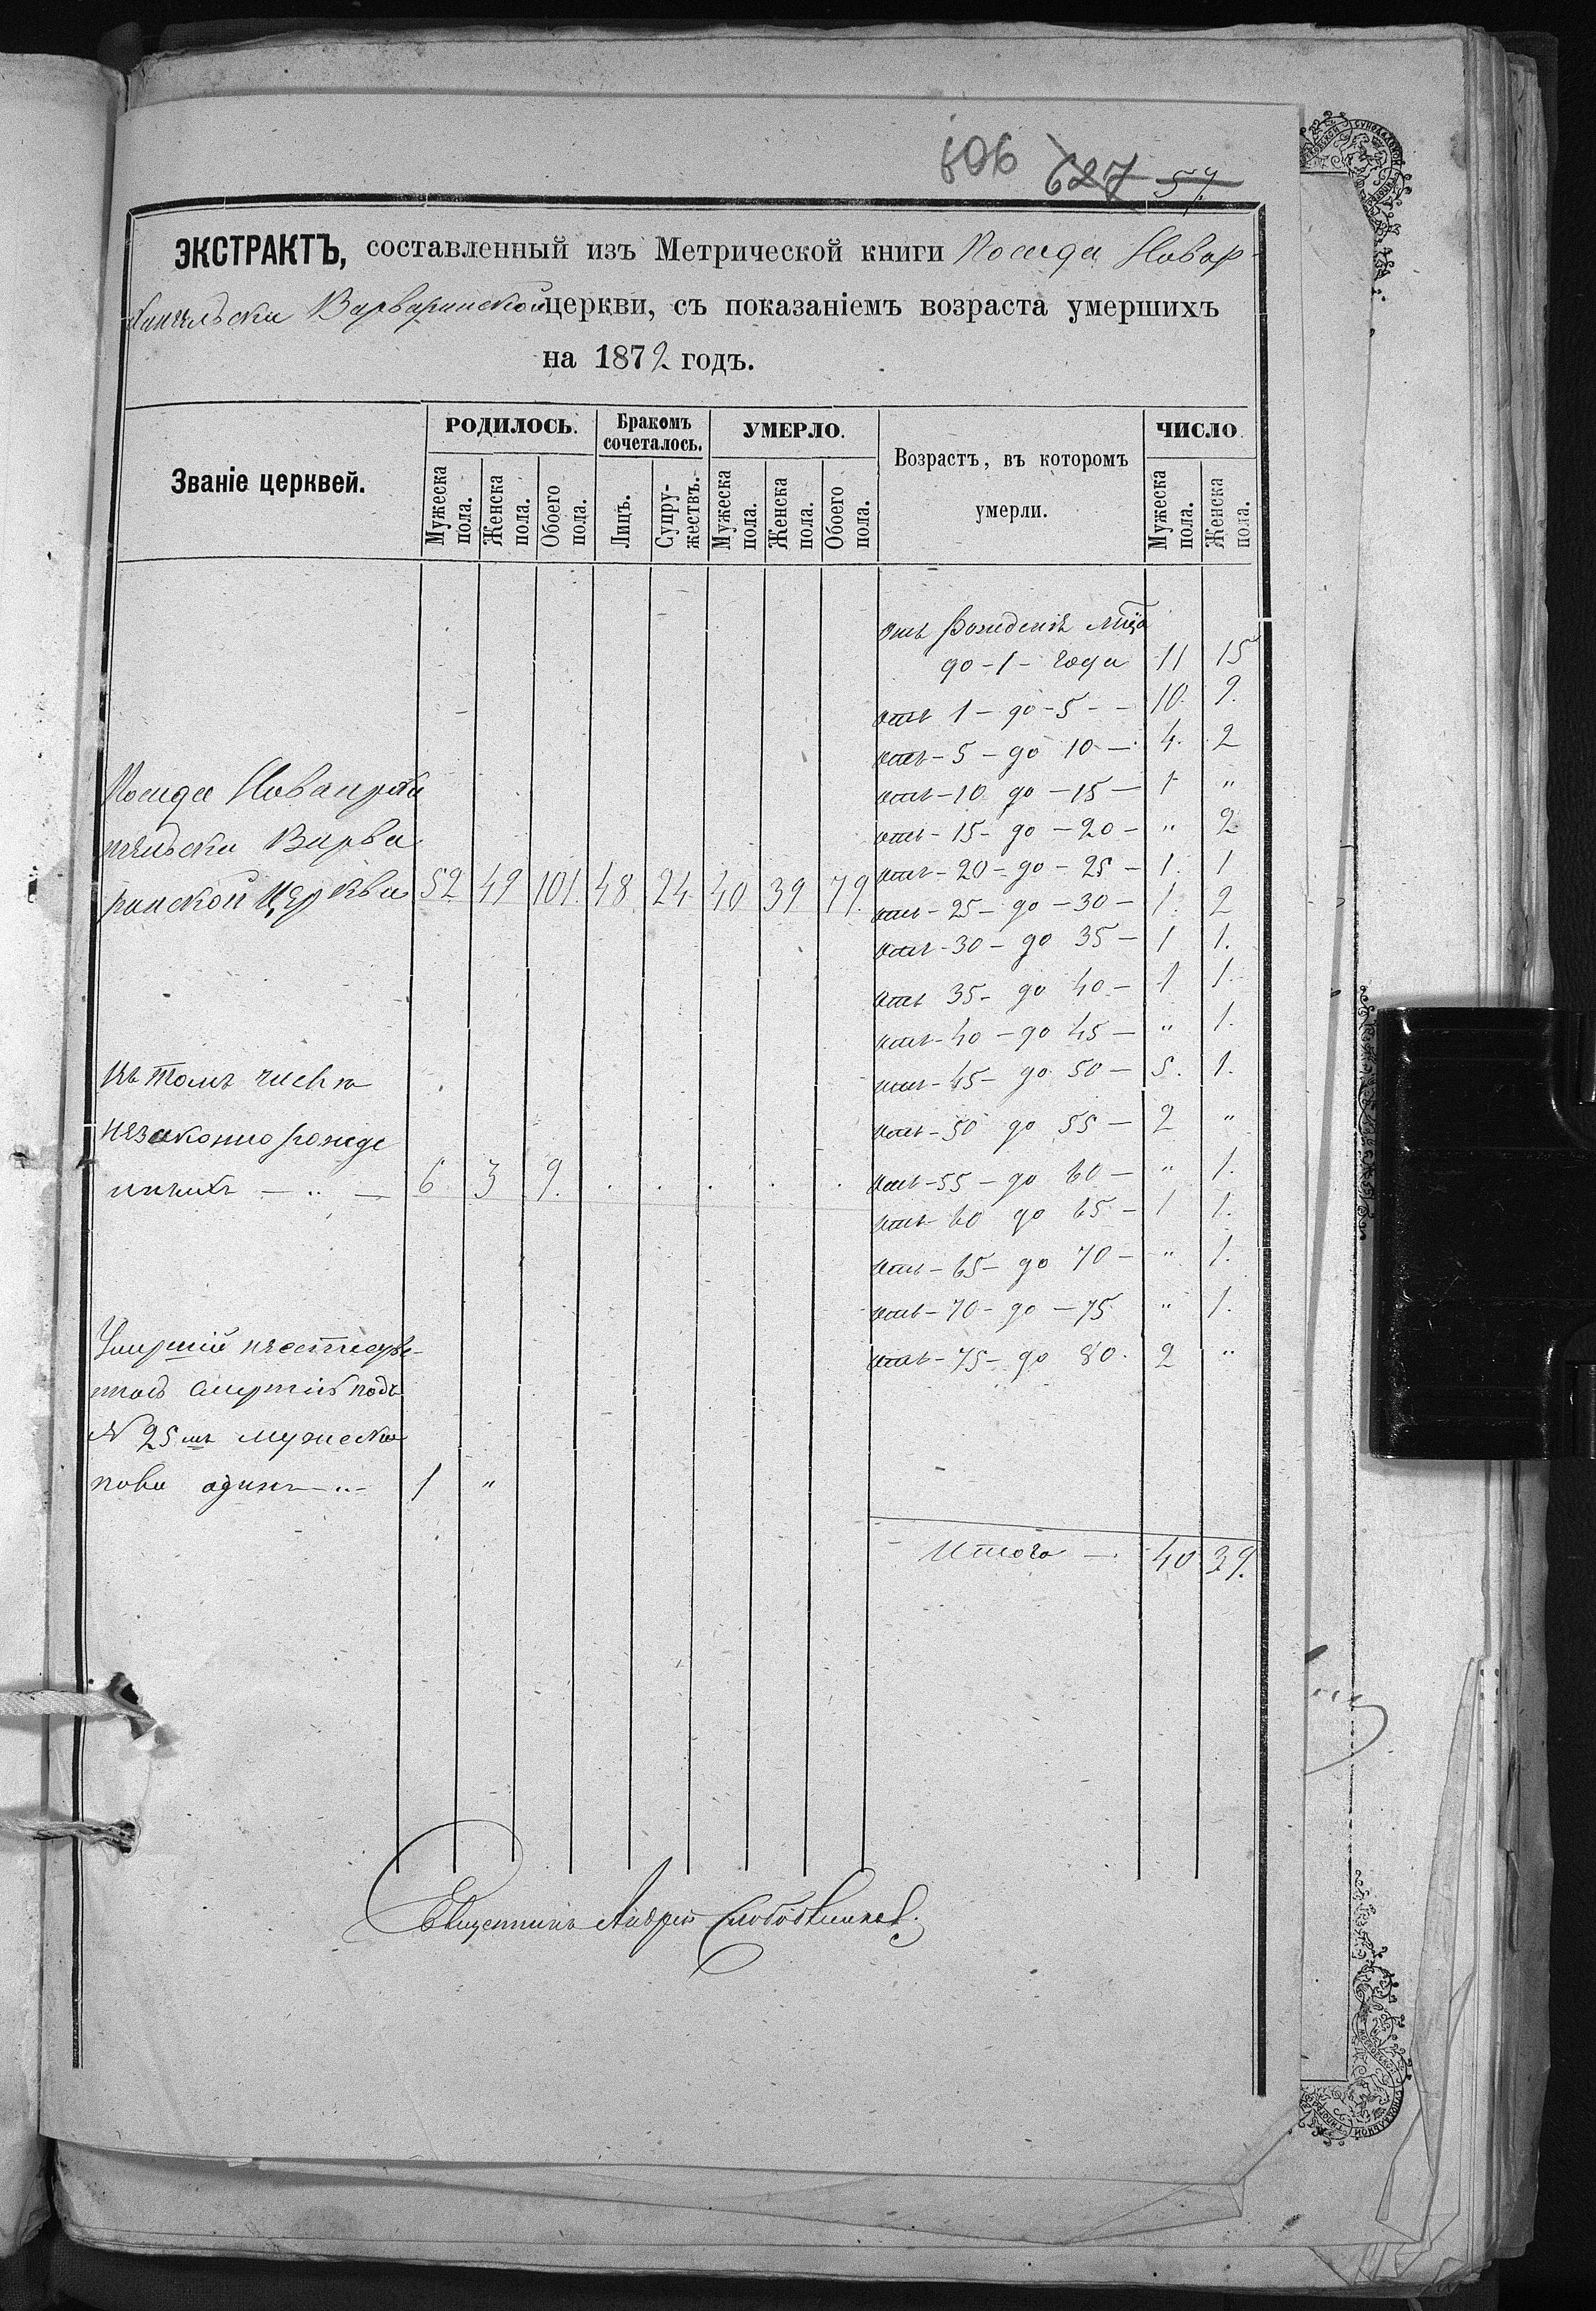 606 627 57.
ЭКСТРАКТЪ, составленный изъ Метрической книги Посада Новар-
хангельска Варваринской церкви, съ показаніемъ возраста умершихъ
на 1872 годъ.
Званіе церквей.
РОДИЛОСЬ.
Мужеска пола.
Женска пола.
Обоего пола.
Бракомъ сочеталось.
Лицъ.
Супружествъ.
УМЕРЛО.
Мужеска пола.
Женска пола.
Обоего пола.
Возрастъ, въ которомъ умерли.
ЧИСЛО.
Мужеска пола.
Женска пола.
отъ рожденія
до - 1 - года 11 15
отъ 1 - до - 5 - - 10. 9.
отъ - 5 - до 10 - 4. 2
отъ - 10 до - 15 - 1 "
отъ - 15 - до - 20 - " 2
отъ - 20 - до - 25 - 1. 1
отъ - 25 - до - 30 - 1. 2
отъ - 30 - до 35 - 1 1.
отъ 35 - до 40 - 1 1.
отъ - 40 - до 45 - " 1.
отъ - 45 - до 50 - 5. 1.
отъ - 50 до 55 - 2 "
отъ - 55 - до 60 - " 1.
отъ 60 до 65 - 1 1.
отъ - 65 - до 70 - " 1.
отъ - 70 - до - 75 " 1.
отъ - 75 - до 80. 2 "
Итого - 40 39.
Посада Новаарха
нгельска Варва
ринской Церкви 52 49 101. 48 24 40 39 79.
Въ томъ числѣ
незаконорожде
нныхъ - " - 6 3 9. . . . . .
Умершій
смертію подъ
№ 25 мъ мужеска
пола одинъ - " - 1 "
Священникъ Андрей